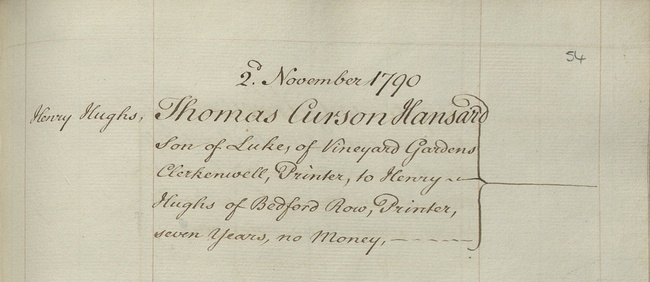 54
2d. November 1790
Henry Hughs, Thomas Curson Hansard
Son of Luke, of Vineyard Gardens
Clerkenwell, Printer, to Henry
Hughs of Bedford Row, Printer,
seven Years, no Money,